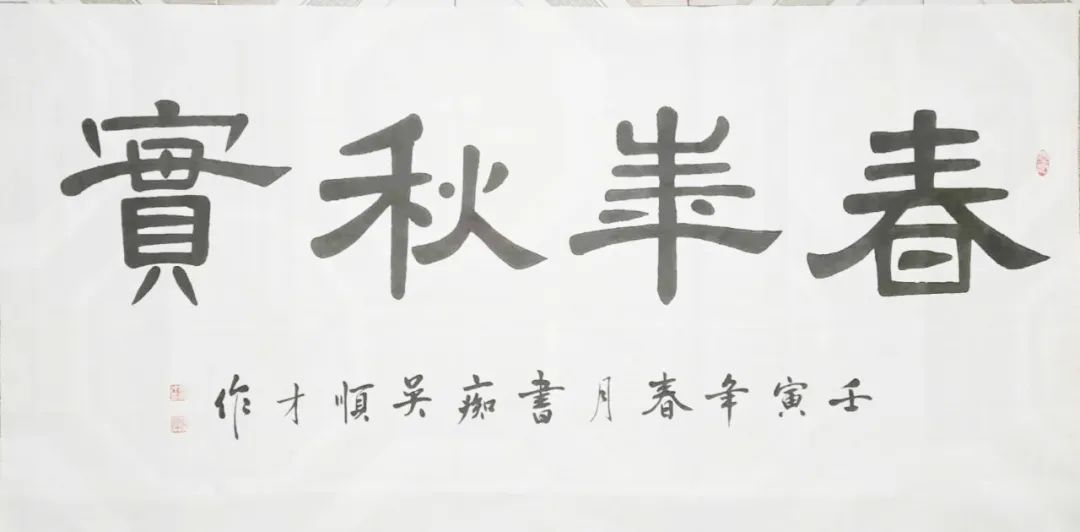 春華秋實
壬寅年春月書痴吴順才作